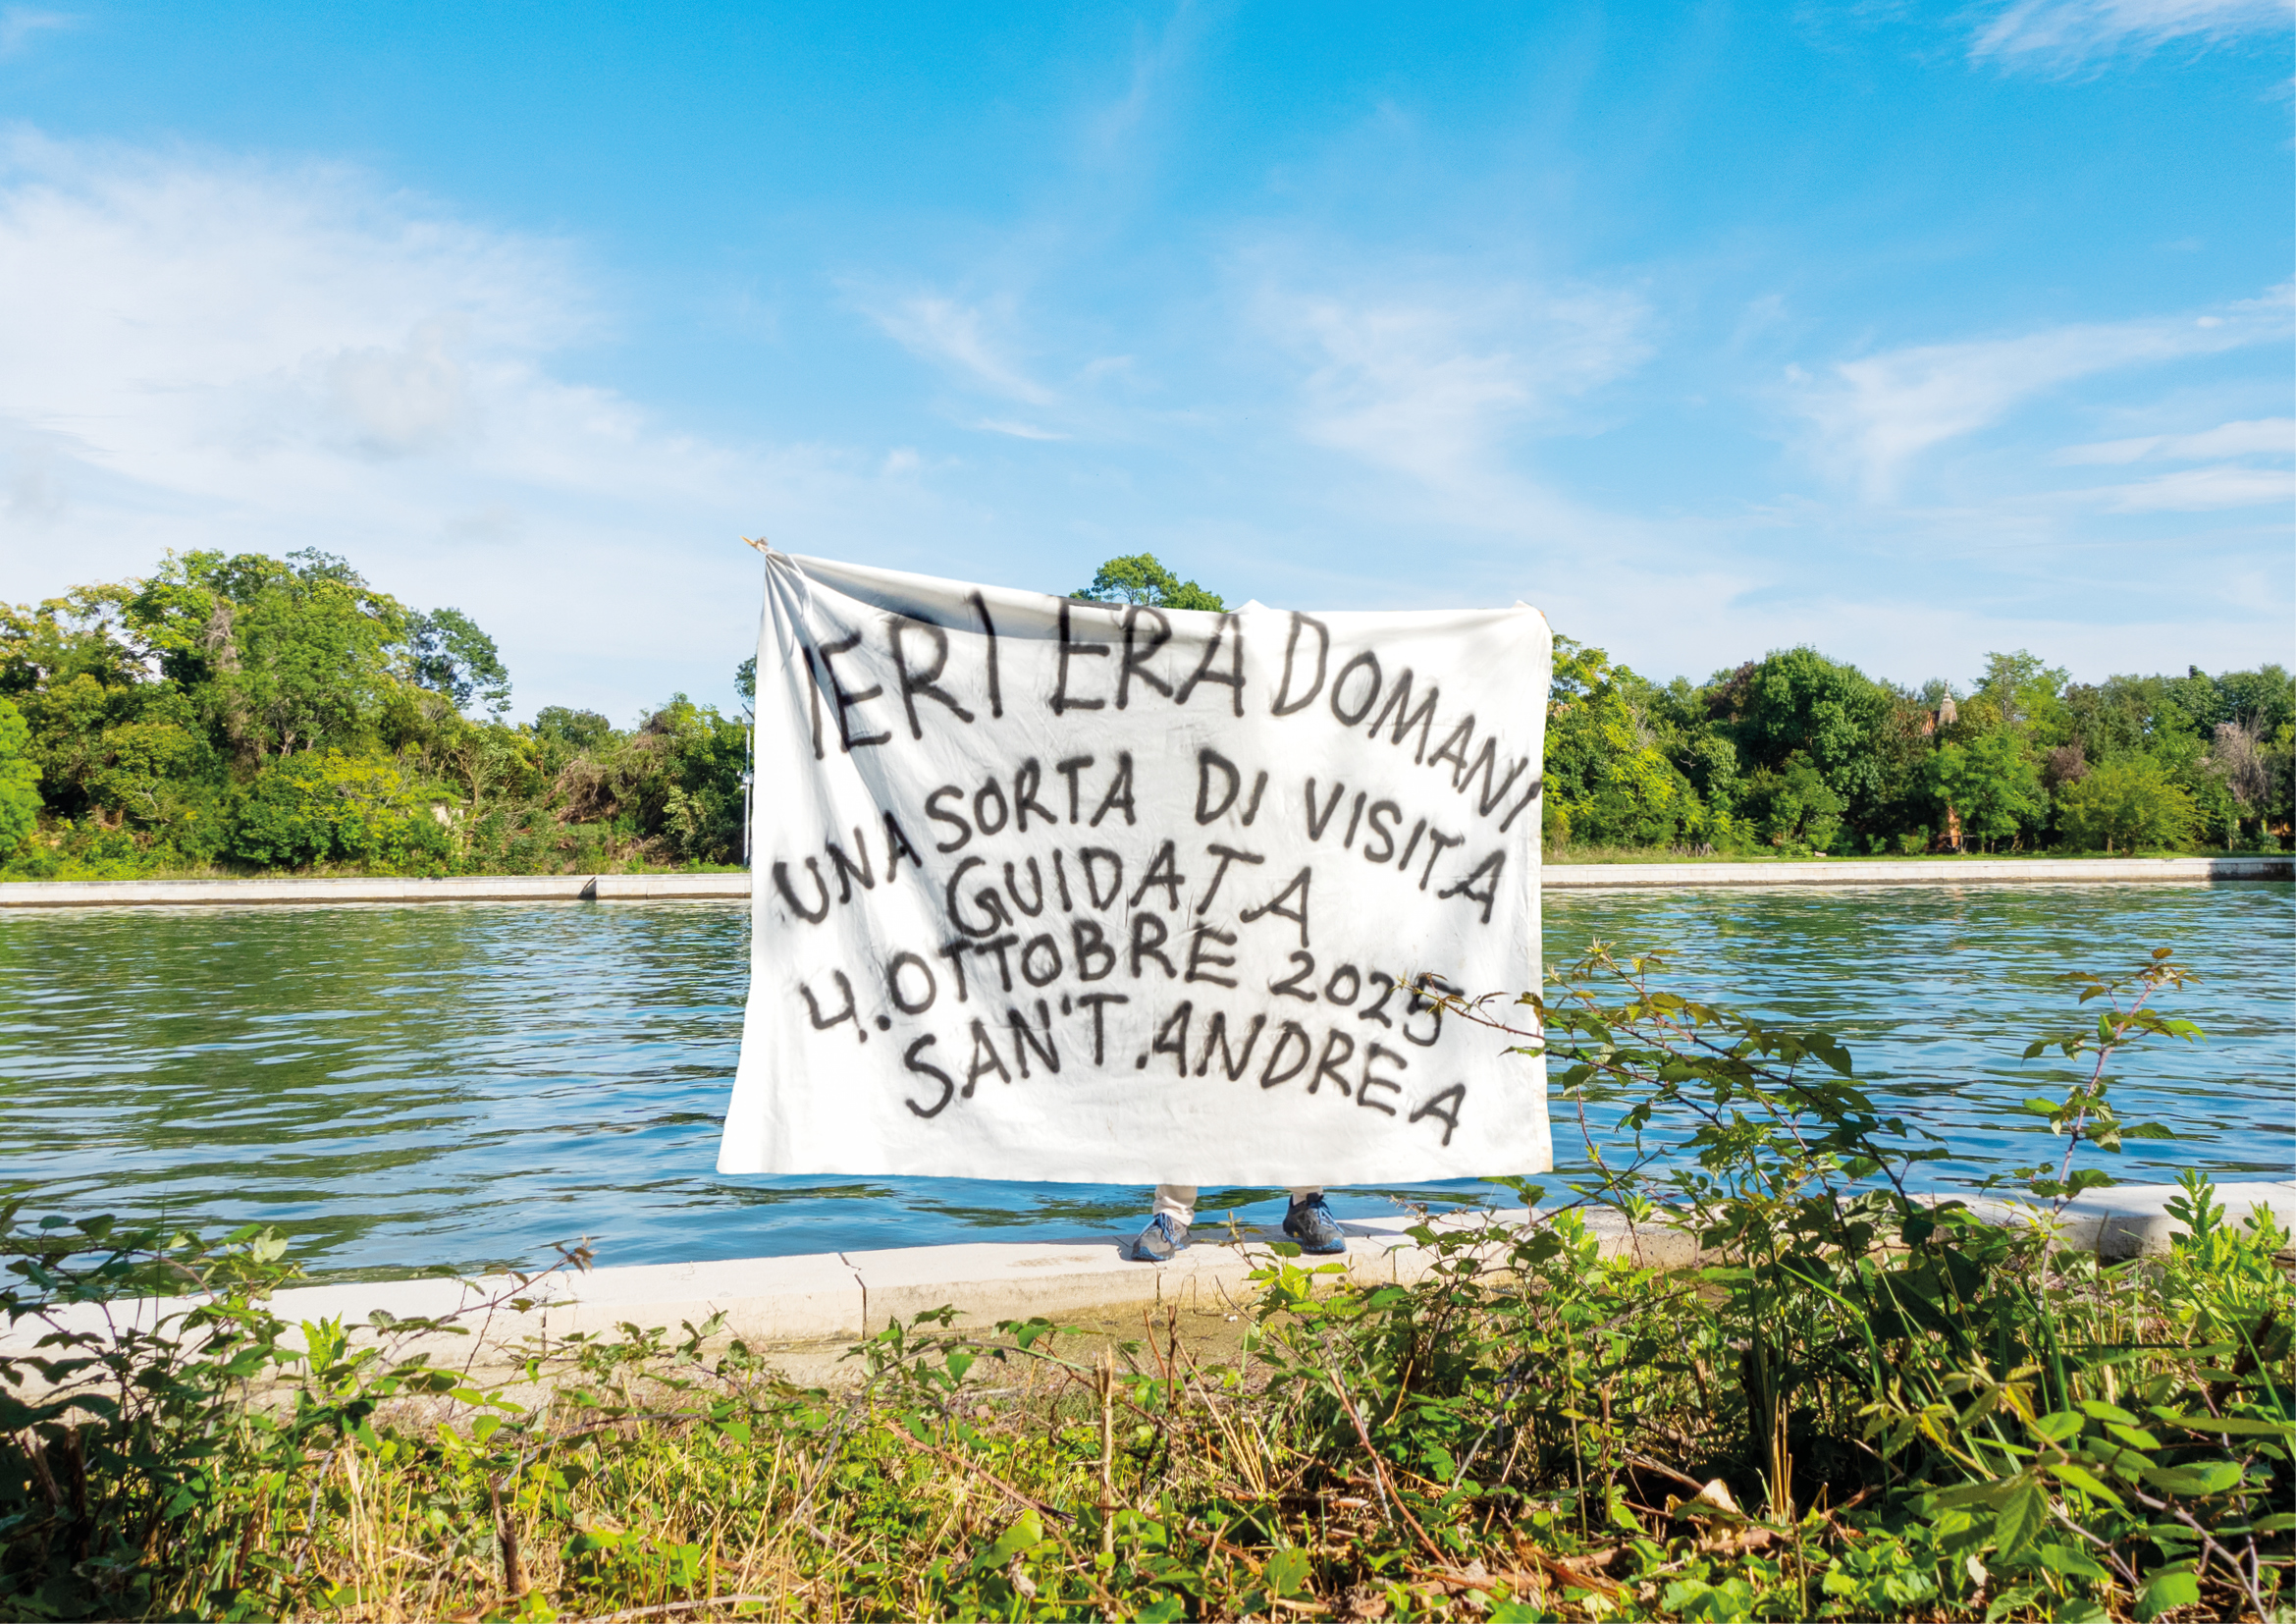 IERI ERA DOMANI
UNA SORTA DI VISITA
GUIDATA
4. OTTOBRE 2025
SAN'T.ANDREA